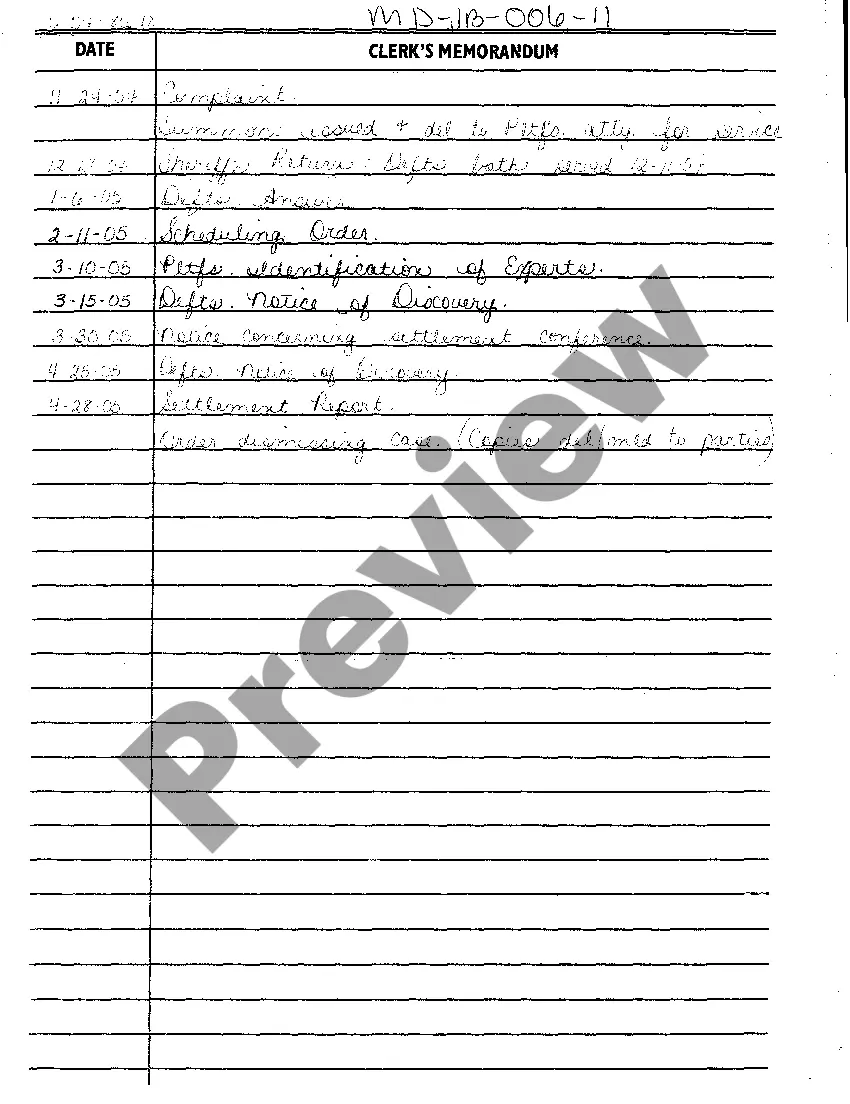 MD-JB-006-11
DATE CLERK'S MEMORANDUM
11-24-04 Complaint.
Summons issued & del to Pltfs. atty. for service
Sheriff's Return: Defts both served
1-6-05 Defts. Answer
2-11-05 Scheduling Order.
3-10-05 Pltfs. Identification of Experts.
3-15-05 Defts. Notice of Discovery.
3-30-05 Notice concerning settlement conference.
4-25-05 Defts. Notice of Discovery.
4-28-05 Settlement Report.
Order dismissing case. (Copies del/med to parties)
Preview